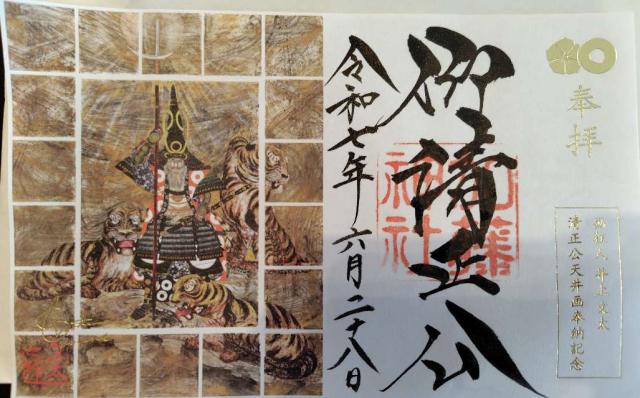 奉拝
画狂人 井上文太
清正公天井画奉納記念
仰清正公
加藤
神社
令和七年六月二十八日